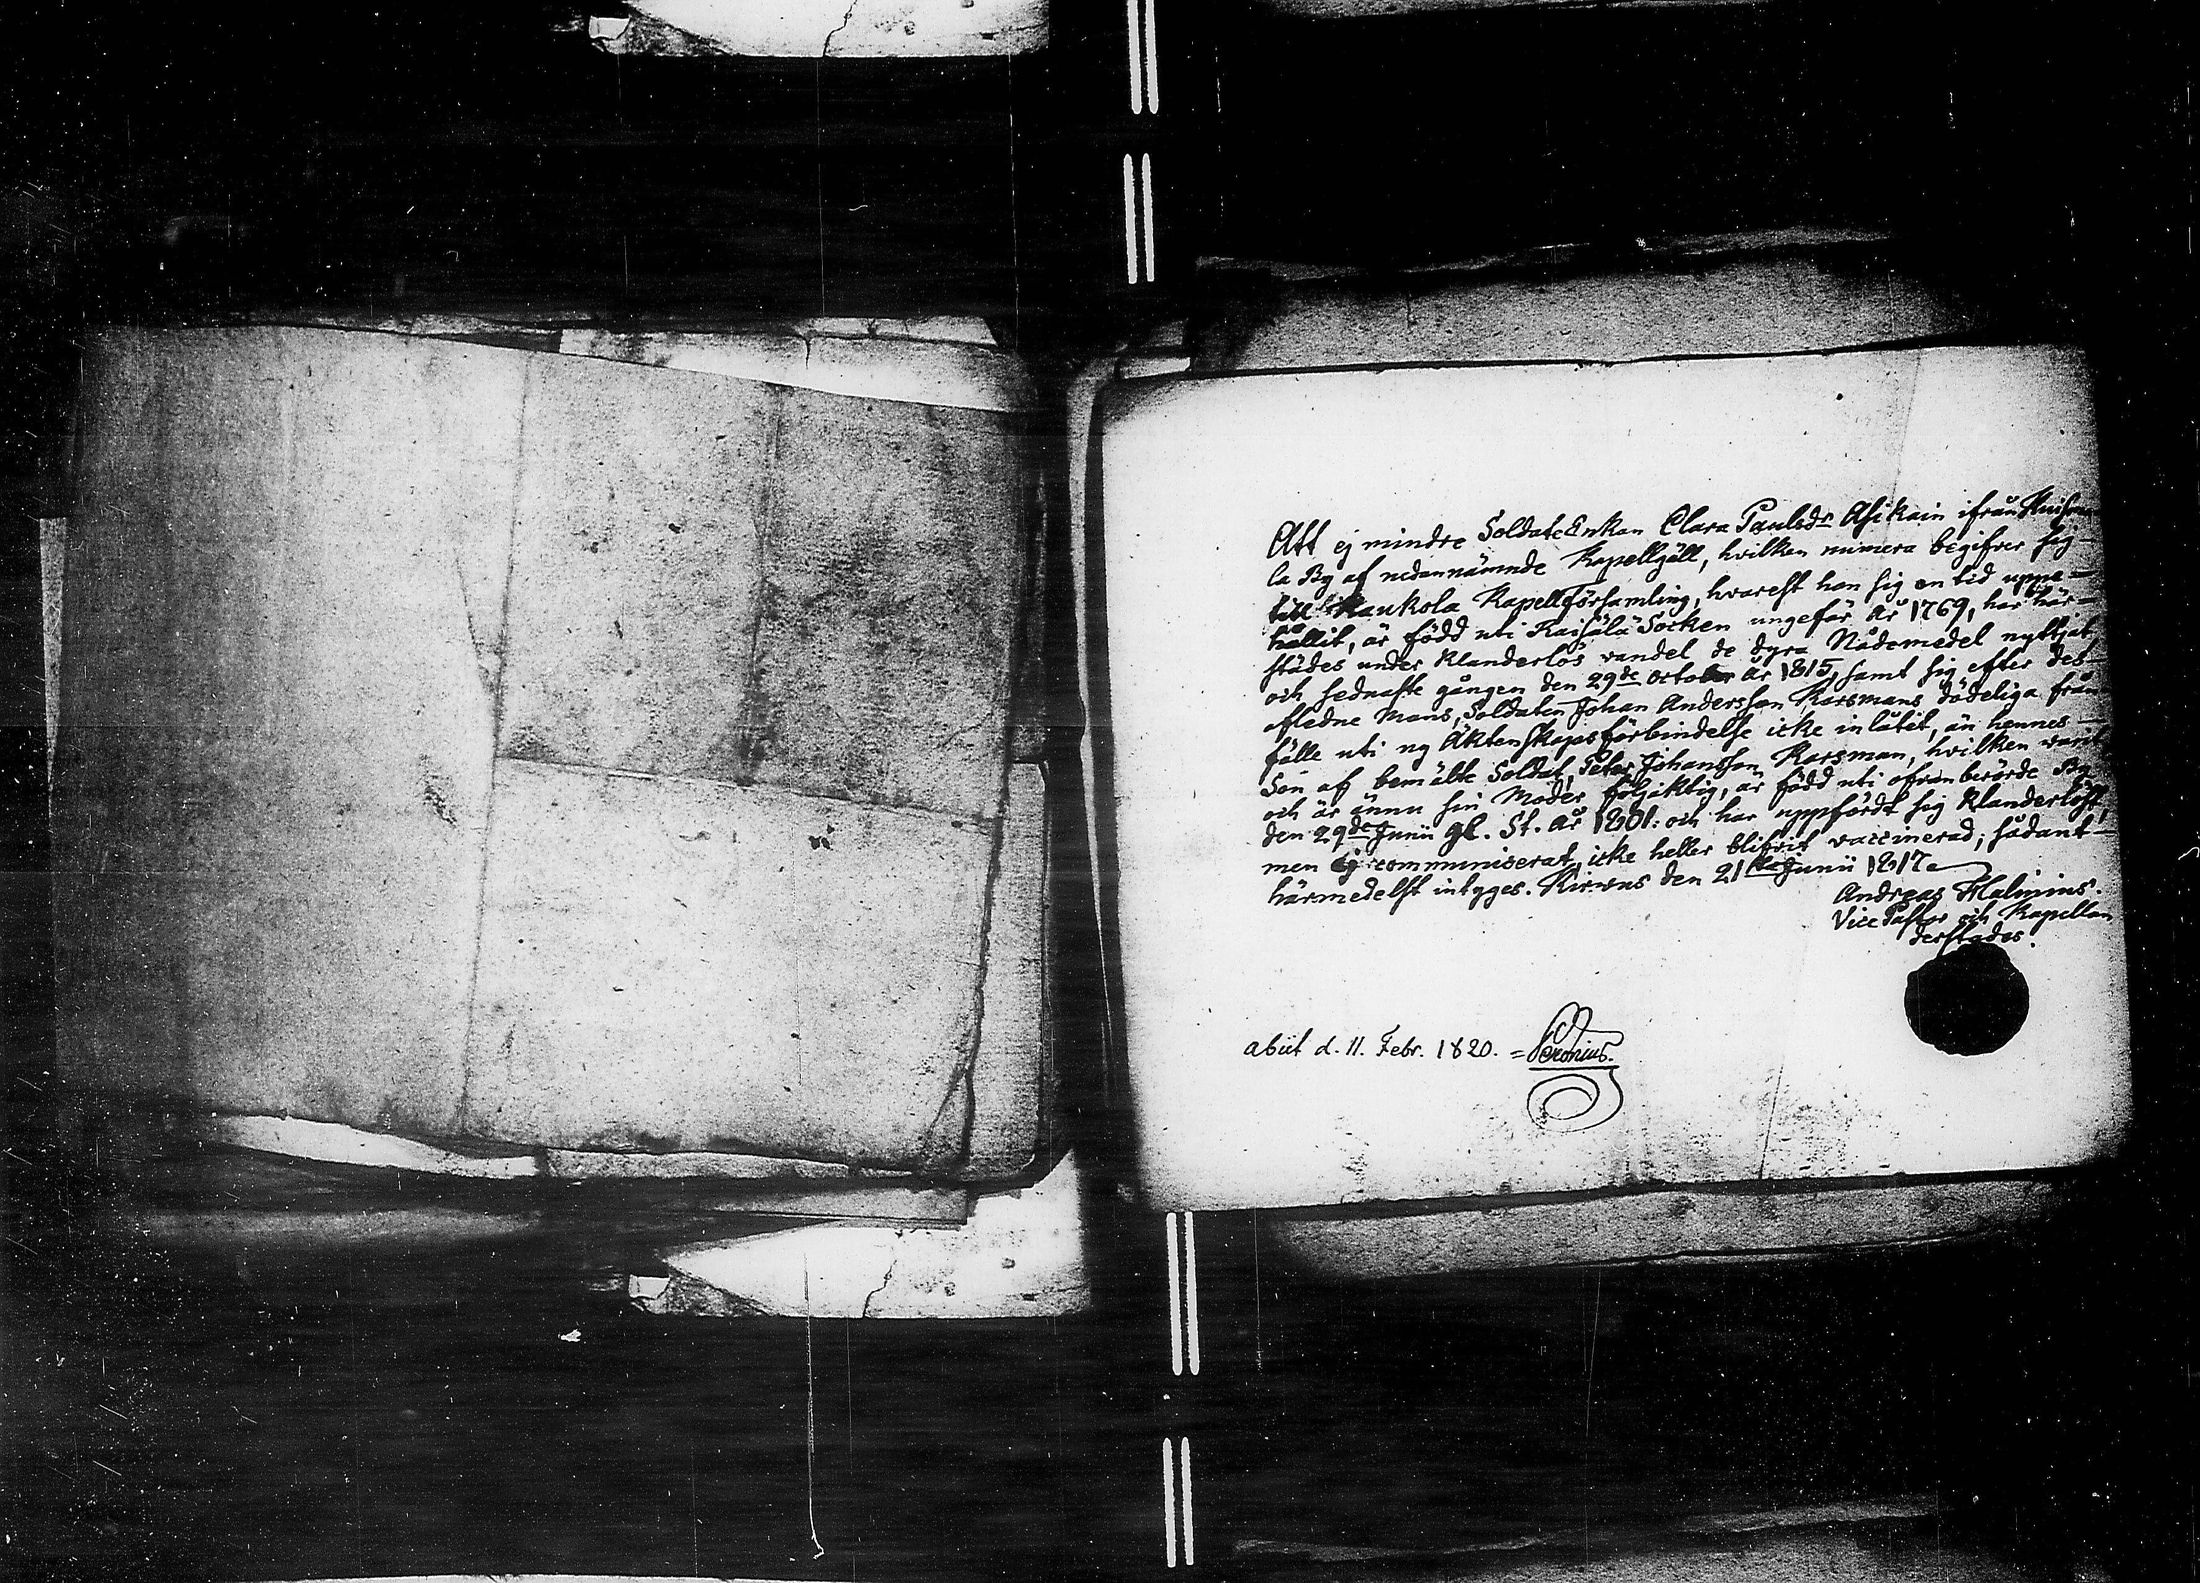 Att ej mindre SoldateEnkan Clara Paulsdr Asikain ifrån
la By af nedannämnde Kapellgäll, hvilken numera begifver sig
till Kaukola Kapellförsamling, hvarest hon sig en tid uppe-
hållit, är född uti Raisälä Socken ungefär år 1769, har här-
städes under klanderlös vandel de dyra Nådemedel nyttjat
och sednaste gången den 29de october år 1815, samt sig efter des
afledne mans, Soldaten Johan Andersson Karsmans dödeliga från
fälle uti ny Äktenskapsförbindelse icke inlåtit, än hennes
Son af bemälte Soldat, Peter Johansson Karsman, hvilken varit
och är ännu sin Moder följaktig, är född uti ofvanberörde By
den 29de Junii gl. St. år 1801. och har uppfördt sig klanderlöst,
men ej communiserat, icke heller blifvit vaccinerad; sådant
härmedelst intyges. Kirwus den 21sta Junii 1817.
Andreas Malinius.
Vice Pastor och Kapellan
derstädes.
abiit d. 11. Febr. 1820. =